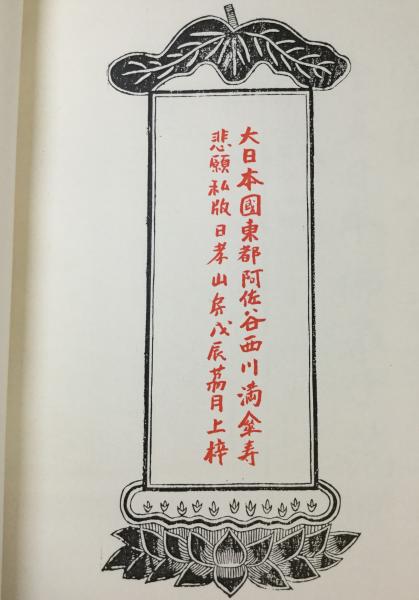 大日本國東都阿佐谷西川満傘寿
悲願私版日孝山房戊辰茘月上梓